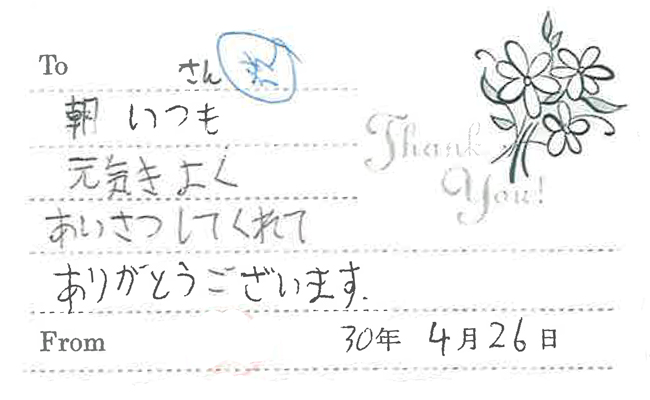 To さん
朝 いつも
元気きよく
あいさつしてくれて
ありがとうございます.
Thank
You!
From 30年 4月26日